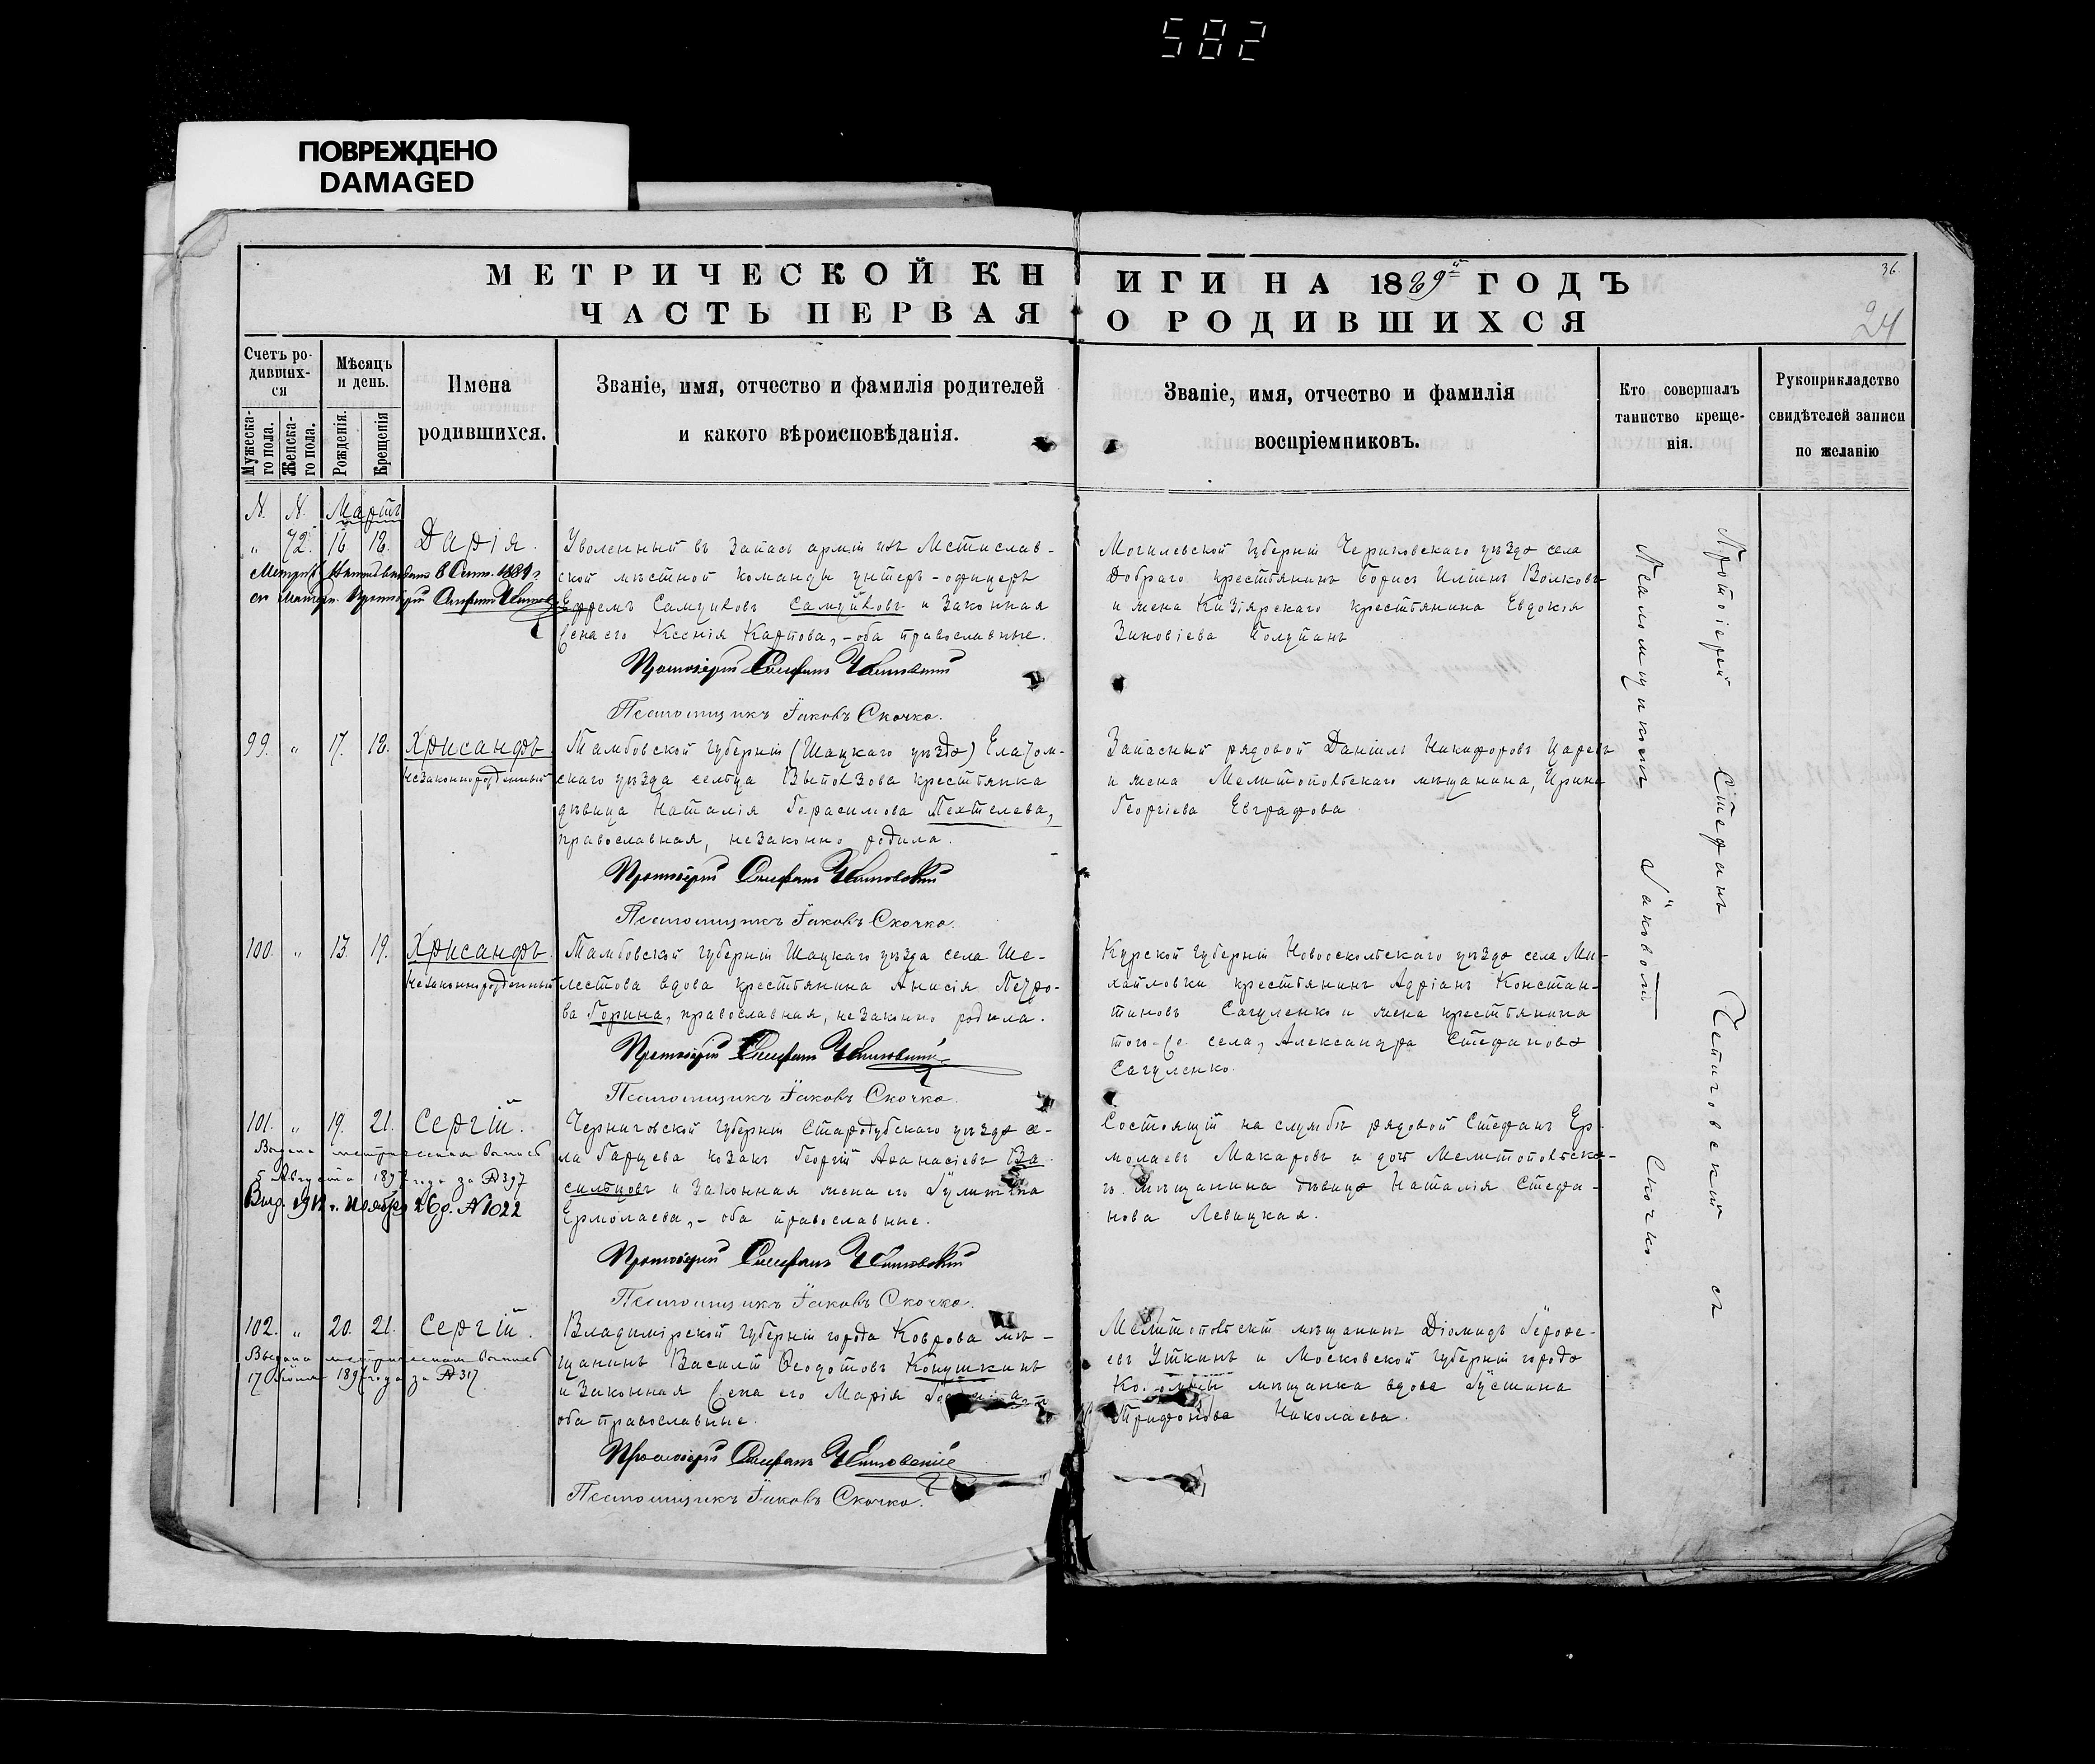 582
ПОВРЕЖДЕНО
DAMAGED
МЕТРИЧЕСКОЙ КНИГИ НА 1889й ГОДЪ
36
ЧАСТЬ ПЕРВАЯ О РОДИВШИХСЯ
24
Счетъ родившихся
Мужескаго пола.
Женскаго пола.
Мѣсяцъ и день.
Рожденія.
Крещенія
Имена родившихся.
Званіе, имя, отчество и фамилія родителей
и какого вѣроисповѣданія.
Званіе, имя, отчество и фамилія
воспріемниковъ.
Кто совершалъ
таинство креще-
нія.
Рукоприкладство
свидѣтелей записи
по желанію
N. N. Мартъ
„ 72. 16 18. Дарія.
Уволенный въ запасъ арміи изъ Мстислав-
ской мѣстной команды унтеръ-офицеръ
Ефремъ Самуиловъ Самуйловъ и законная
жена его Ксенія Карпова, - оба православные.
Протоіерей Стефанъ
Псаломщикъ Іаковъ Скочко.
Могилевской губерніи Чериковскаго уѣзда села
Добраго крестьянинъ Борисъ Ильинъ Волковъ
и жена крестьянина Евдокія
Зиновіева
99. „ 17. 18. Хрисанфъ
незаконнорожденный
Тамбовской губерніи (Шацкаго уѣзда) Елатом-
скаго уѣзда сельца Выползова крестьянка
дѣвица Наталія Герасимова Лехтелева,
православная, незаконно родила.
Протоіерей Стефанъ
Псаломщикъ Іаковъ Скочко.
Запасный рядовой Даніилъ Никифоровъ Царевъ
и жена Мелитопольскаго мѣщанина, Ирина
Георгіева Евграфова
100. „ 13. 19. Хрисанфъ
незаконнорожденный
Тамбовской губерніи Шацкаго уѣзда села Ше-
лестова вдова крестьянина Анисія Петро-
ва Горина, православная, незаконно родила.
Протоіерей Стефанъ
Псаломщикъ Іаковъ Скочко.
Курской губерніи Новооскольскаго уѣзда села Ми-
хайловки крестьянинъ Адріанъ Констан-
тиновъ Сагуленко и жена крестьянина
того-же села, Александра Стефанова
Сагуленко.
101. „ 19. 21. Сергій.
Выдана метрическая выпись
5 Августа 1897 года за № 397
Выд. 1912 г. Ноября 26 д. № 1022
Черниговской губерніи Стародубскаго уѣзда се-
ла Гарцева козакъ Георгій Аѳанасіевъ Ва
сильцовъ и законная жена его Гулиттна
Ермолаева, - оба православные.
Протоіерей Стефанъ
Псаломщикъ Іаковъ Скочко.
Состоящій на службѣ рядовой Стефанъ Ер-
молаевъ Макаровъ и дочь Мелитопольска-
го мѣщанина дѣвица Наталія Стефа-
нова Левицкая.
102. „ 20. 21. Сергій.
Выдана метрическая выпись
1897 года за № 317
Владимірской губерніи города Коврова мѣ-
щанинъ Василій Ѳеодотовъ Копушкинъ
и законная жена его Марія
оба православные.
Протоіерей Стефанъ
Псаломщикъ Іаковъ Скочко.
Мелитопольскій мѣщанинъ Діомидъ Героѳе-
евъ Уткинъ и Московской губерніи города
мѣщанка вдова Густина
Трифонова Николаева.
Протоіерей Стефанъ съ
Псаломщикомъ Іаковомъ Скочко.